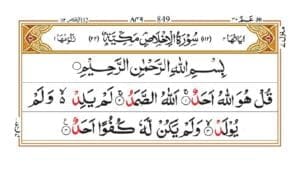 849
سُوْرَةُ الْاِخْلَاصِ مَكِّيَّةٌ
بِسْمِ اللّٰهِ الرَّحْمٰنِ الرَّحِيْمِ
قُلْ هُوَ اللّٰهُ اَحَدٌ ۚ اَللّٰهُ الصَّمَدُ ۚ لَمْ يَلِدْ ۙ وَلَمْ
يُوْلَدْ ۙ وَلَمْ يَكُنْ لَّهٗ كُفُوًا اَحَدٌ